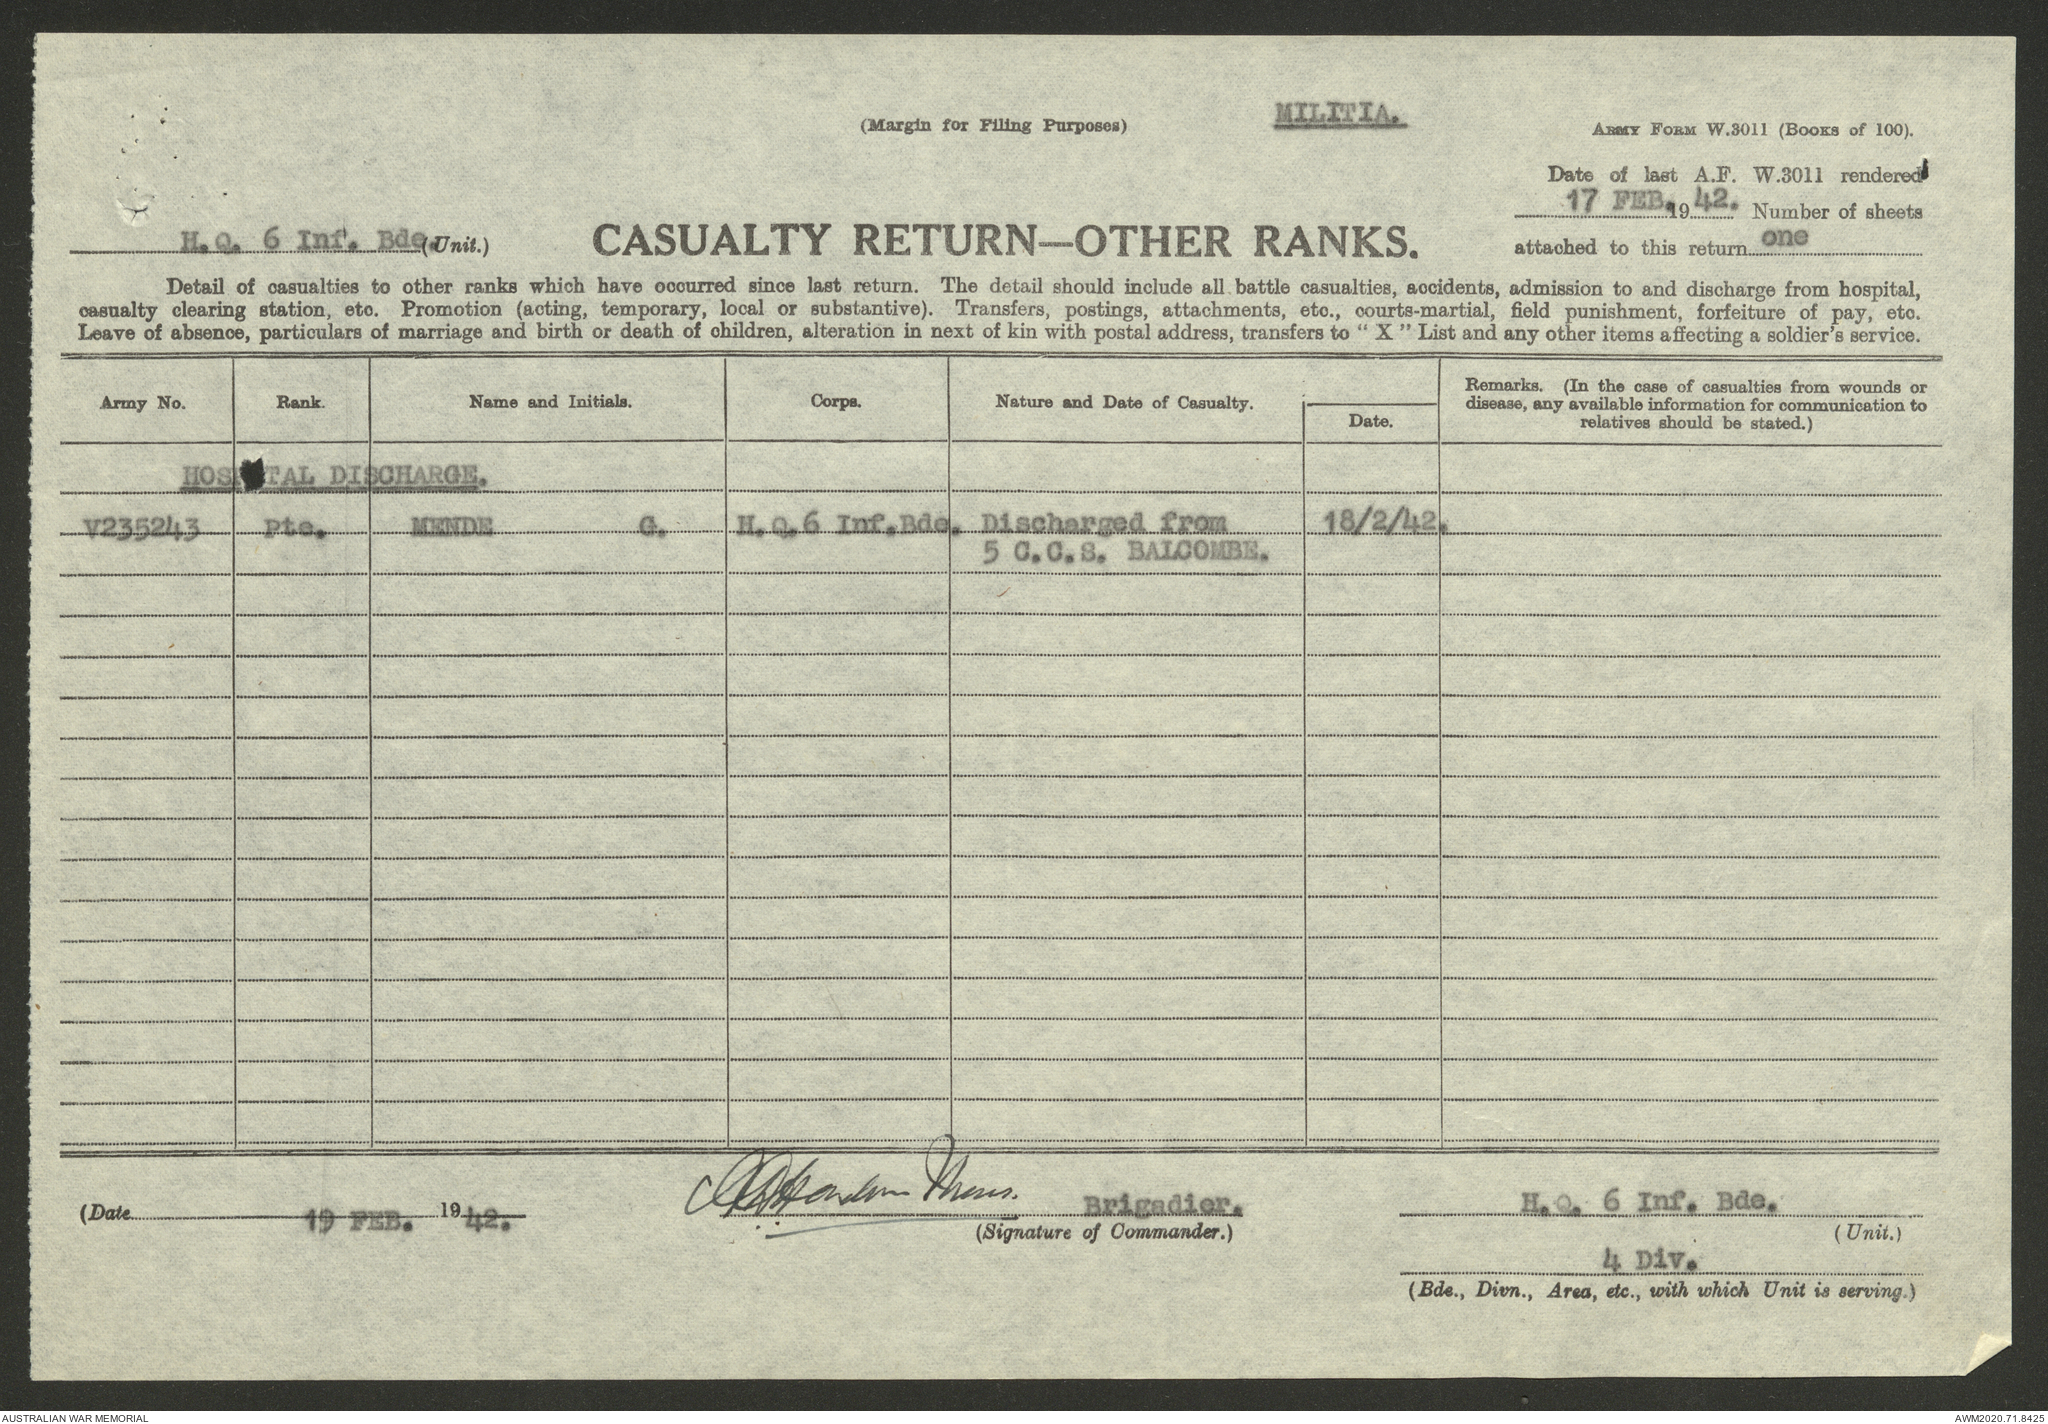 (Margin for Filing Purposes)
MILITIA.
ARMY FORM W.3011 (BOOKS of 100).
Date of last A.F. W.3011 rendered
17 FEB. 19 42. Number of sheets
attached to this return one
H.Q. 6 Inf. Bde. (Unit.)
CASUALTY RETURN—OTHER RANKS.
Detail of casualties to other ranks which have occurred since last return. The detail should include all battle casualties, accidents, admission to and discharge from hospital,
casualty clearing station, etc. Promotion (acting, temporary, local or substantive). Transfers, postings, attachments, etc., courts-martial, field punishment, forfeiture of pay, etc.
Leave of absence, particulars of marriage and birth or death of children, alteration in next of kin with postal address, transfers to “ X ” List and any other items affecting a soldier's service.
Army No. Rank. Name and Initials. Corps. Nature and Date of Casualty. Date.
Remarks. (In the case of casualties from wounds or
disease, any available information for communication to
relatives should be stated.)
HOSPITAL DISCHARGE.
V235243 Pte. MENDE G. H.Q.6 Inf.Bde. Discharged from 18/2/42.
5 C.C.S. BALCOMBE.
(Date 19 FEB. 19 42.
Brigadier.
(Signature of Commander.)
H.Q. 6 Inf. Bde.
(Unit.)
4 Div.
(Bde., Divn., Area, etc., with which Unit is serving.)
AUSTRALIAN WAR MEMORIAL
AWM2020.71.8425